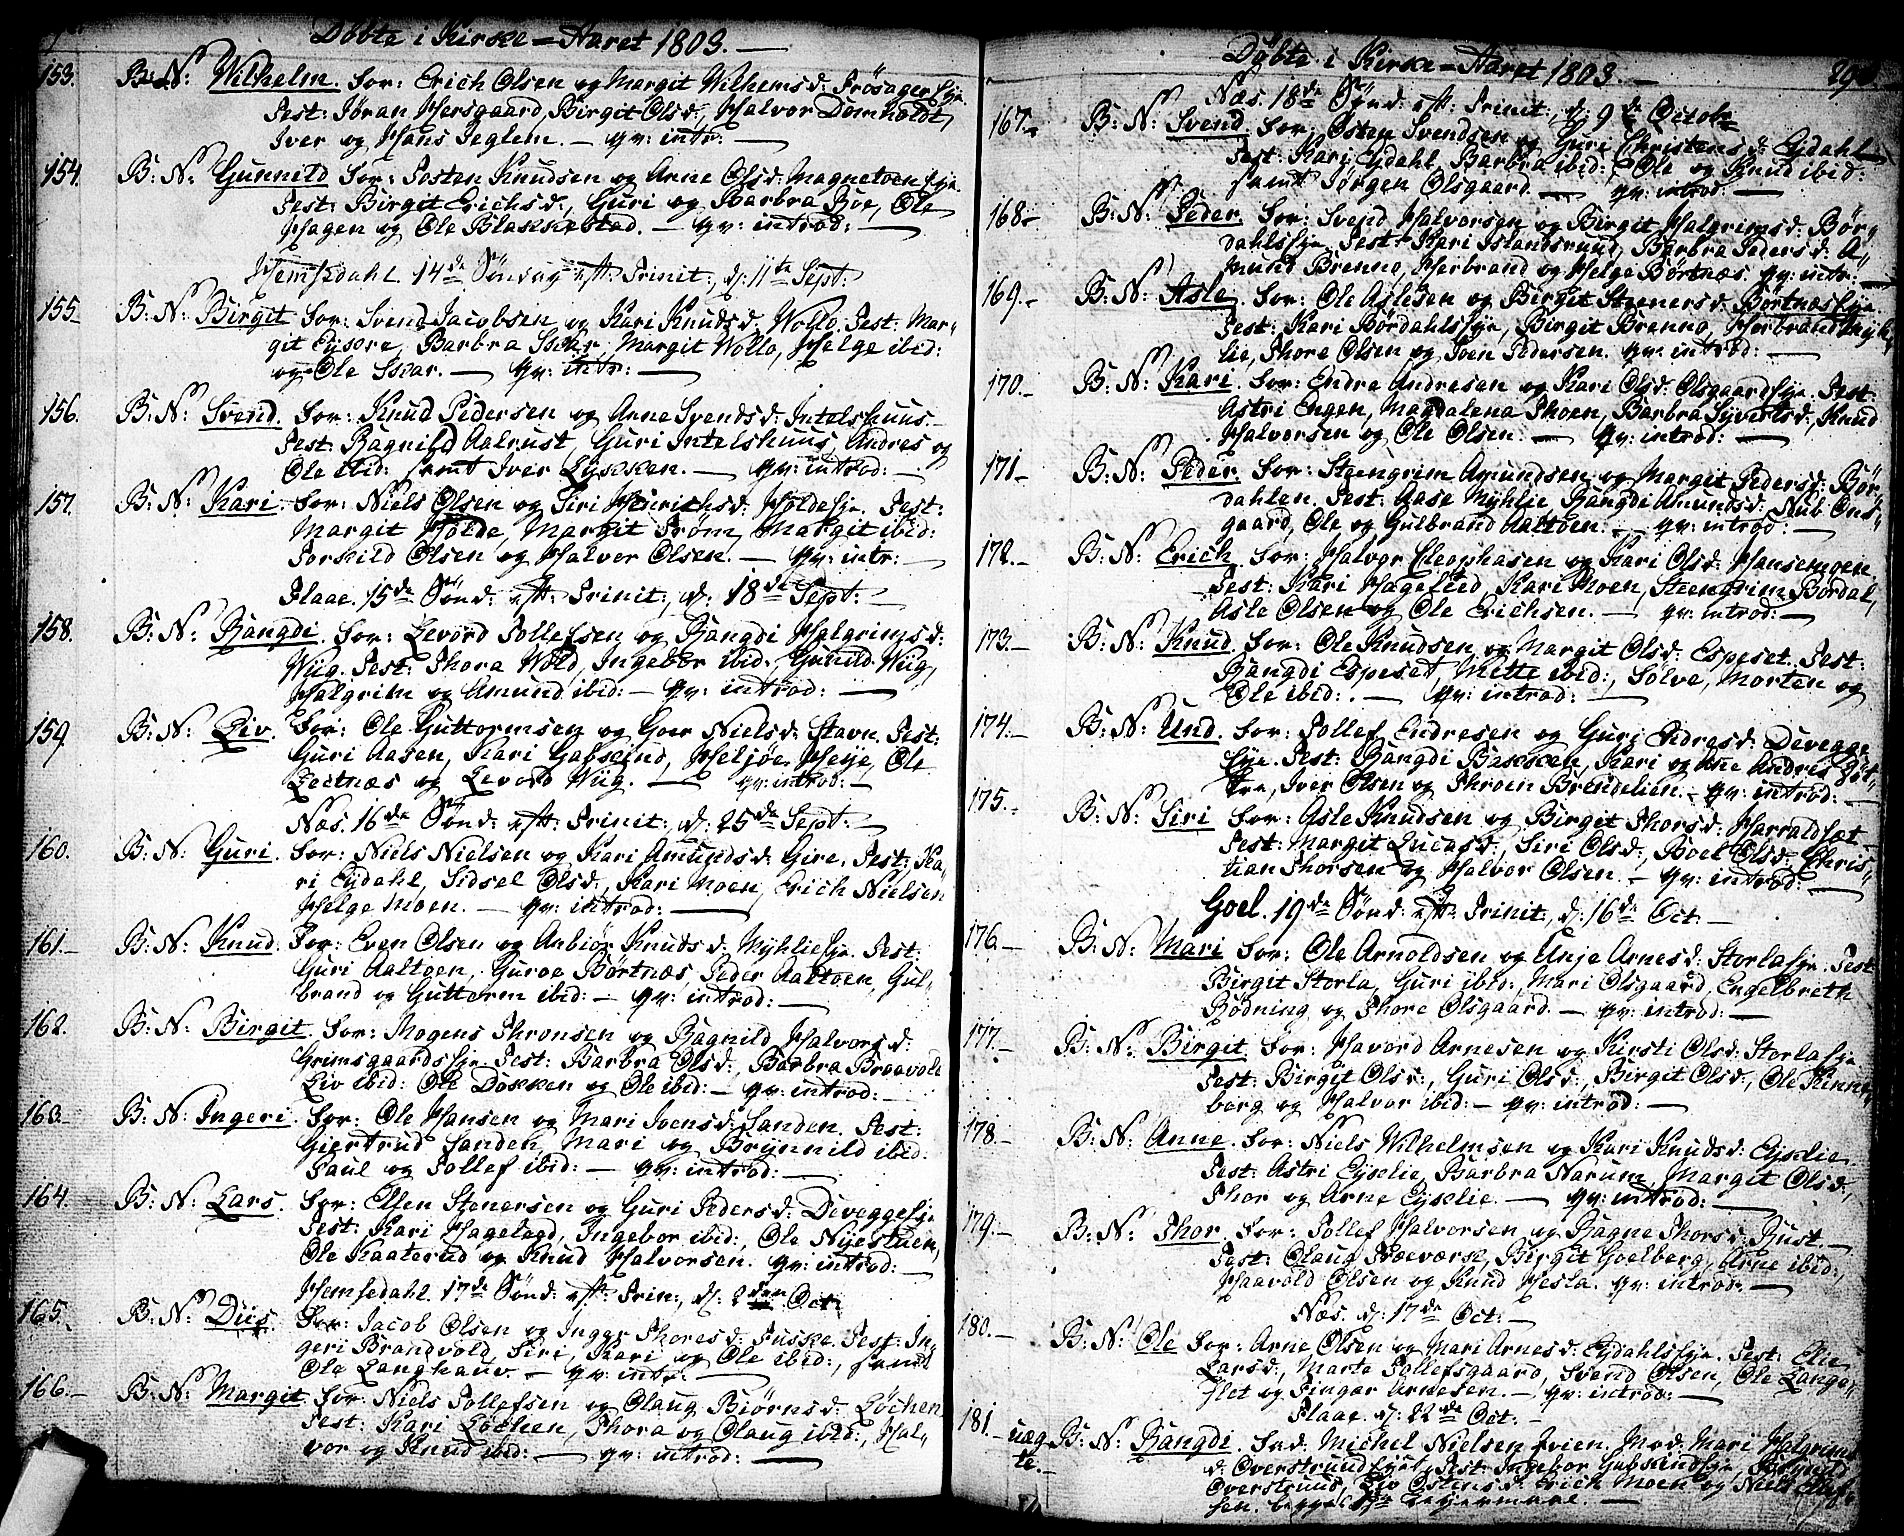 Döbte i Kirke=Aaret 1803.
153. B: N: Wilhelm. For: Erich Olsen og Margit Wilhemsd: Frösager Eje.
Test: Jöran Hersgaard, Birgit Olsd:, Halvor Domholdt,
Iver og Hans Jeglem. — qv: intr: —
154. B: N: Gunnild For: Tosten Knudsen og Arne Olsd: Magnetoen Eje.
Test: Birgit Erichsd:, Guri og Barbra Roe, Ole
Hagen og Ole Blakkestad. — qv: introd: —
Hemsedahl. 14de Söndag eft: Trinit:, d: 11te Sept:
155. B: N: Birgit For: Svend Jacobsen og Kari Knudsd: Wollo. Test: Mar-
git Eysere, Barbra Skar, Margit Wollo, Helge ibid:
og Ole Skar. — qv: intr: —
156. B: N: Svend. For: Knud Pedersen og Arne Svendsd: Intelshuus.
Test: Ragnild Aalrust, Guri Intelshuus, Andres og
Ole ibid: samt Iver Lykken. — qv: introd: —
157. B: N: Kari. For: Niels Olsen og Siri Henrichsd: Holdeeje. Test:
Margit Holde, Margit Trom, Margit ibid:
Torkild Olsen og Halvor Olsen. — qv: intr: —
Flaae. 15de Sönd: eft: Trinit:, d: 18de Sept: —
158. B: N: Rangdi. For: Levord Tollefsen og Rangdi Halgrimsd:
Wiig. Test: Thora Wold, Ingebor ibid:, Gunild Wiig,
Halgrim og Amund ibid: — qv: introd: —
159. B: N: Liv. For: Ole Guttormsen og Goer Nielsd: Stavn. Test:
Guri Aasen, Kari Gulskind, Heljöe Heije, Ole
Lectnæs og Levord Wiig. — qv: introd: —
Næs. 16de Sönd: eft: Trinit:, d: 25de Sept: —
160. B: N: Guri. For: Niels Nielsen og Kari Amundsd: Gire. Test: Ka-
ri Eydahl, Sidsel Olsd:, Kari Moen, Erich Nielsen
Helge Moen. — qv: introd: —
161. B: N: Knud. For: Even Olsen og Anbiör Knudsd: Myhlie Eje. Test:
Guri Aaltoen, Guroe Börtnæs, Peder Aaltoen, Gul-
brand og Guttorm ibid: — qv: introd: —
162. B: N: Birgit. For: Mogens Thronsen og Ragnild Halvorsd:
Grimsgaards Eje. Test: Barbra Olsd:, Barbra Braavold
Liv ibid: Ole Dokken og Ole ibid: — qv: introd: —
163. B: N: Ingeri. For: Ole Hansen og Mari Ivensd: Sanden. Test:
Giertrud Sanden, Mari og Brynnild ibid:
Paul og Tollef ibid: — qv: introd: —
164. B: N: Lars. For: Ellen Stenersen og Guri Pedersd: Deveggeeje
Test: Kari Hagelagd, Ingebor ibid:, Ole Nyestuen,
Ole Kaaterud og Knud Halvorsen. qv: introd: —
Hemsedahl. 17de Sönd: eft: Trin:, d: 2den Oct:
165. B: N: Diis For: Jacob Olsen og Inger Thoresd: Tuske. Test: In-
geri Brandvold, Siri, Kari og Ole ibid:, samt
Ole Langhauv. — qv: intr: —
166. B: N: Margit For: Niels Tollefsen og Olaug Biörnsd: Löchen
Test: Kari Löchen, Thora og Olaug ibid:, Hal-
vor og Knud ibid: — qv: introd: —
Döbte i Kirke=Aaret 1803. —
Næs. 18de Sönd: eft: Trinit:, d: 9de Octobr
167. B: N: Svend. For: Östen Svendsen og Guri Christensd: Eydahl
Test: Kari Eydahl, Barbra ibid:, Ole og Knud ibid:
samt Jörgen Olsgaard. — qv: introd: —
168. B: N: Peder. For: Svend Halvorsen og Birgit Halgrimsd: Bör-
dahls Eje. Test: Kari Islandsruud, Barbra Pedersd: A-
mund Brenno, Herbrand og Helge Börtnæs. qv: intr: —
169. B: N: Asle. For: Ole Aslesen og Birgit Steenersd: Börtnæs Eje
Test: Kari Bördahls Eje, Birgit Brenno, Herbrand Myh-
lie, Thore Olsen og Sven Pedersen. qv: introd: —
170. B: N: Kari. For: Endre Andresen og Kari Olsd: Olsgaards Eje. Test:
Astri Engen, Magdalena Thoen, Barbra Syvertsd:, Knud
Halvorsen og Ole Olsen. — qv: introd: —
171. B: N: Peder. For: Steengrim Amundsen og Margit Pedersd: Bör-
dahlen. Test: Aase Myhlie, Rangdi Amundsd: Nub Ons-
gaard, Ole og Gulbrand Aaltoen. — qv: introd: —
172. B: N: Erich. For: Halvor Cleophasen og Kari Olsd: Hansemoen.
Test: Kari Hagelled, Kari Moen, Steengrim Bördal,
Asle Olsen og Ole Erichsen. — qv: introd: —
173. B: N: Knud. For: Ole Knudsen og Margit Olsd: Espeset. Test:
Rangdi Espeset, Mitte ibid:, Sölve, Morten og
Ole ibid:. — qv: introd: —
174. B: N: Und. For: Tollef Endresen og Guri Endresd: Devegge
Eje. Test: Rangdi Bakken, Kari og Anne Andresd:
Iver Olsen og Throen Brendelien. — qv: introd: —
175. B: N: Siri For: Asle Knudsen og Birgit Thorsd: Harraldset
Test: Margit Lucasd:, Siri Olsd:, Boel Olsd: Chris-
tian Thorsen og Halvor Olsen. — qv: introd: —
Goel. 19de Sönd: eft: Trinit:, d: 16de Oct. —
176. B: N: Mari For: Ole Arnoldsen og Unje Arnesd: Storla Eje. Test
Birgit Storla, Guri ibid:, Mari Olsgaard, Engelbreth
Rödning og Thore Olsgaard. — qv: introd: —
177. B: N: Birgit. For: Havord Arnesen og Kirsti Olsd: Storla Eje
Test: Birgit Olsd:, Guri Olsd:, Birgit Olsd:, Ole Kinne-
berg og Halvor ibid: — qv: introd: —
178. B: N: Anne. For: Niels Wilhelmsen og Kari Knudsd: Eyklie.
Test: Astri Eyklie, Barbra Narum, Margit Olsd:,
Thor og Arne Eyklie. — qv: introd: —
179. B: N: Thor. For: Tollef Halvorsen og Ragne Thorsd: Rust. —
Test: Olaug Noeværk, Birgit Goelberg, Arne ibid:,
Haavold Olsen og Knud Hesla. qv: introd: —
Næs. d: 17de Oct: —
180. B: N: Ole For: Arne Olsen og Mari Arnesd: Eydahls Eje. Test: Elie
Larsd:, Marte Tollefsgaard, Svend Olsen, Ole Lange-
slet og Fingar Arnesen. — qv: introd: —
Flaae. d: 22de Oct: —
181. uæg- B: N: Rangdi. Fad: Michel Nielsen Ivien. Mod: Mari Halgrims
te. d: Overstruud Eje. Test: Ingebor Gulskinds Eje,
Overstruud, Liv Östensd: Erich Moen og Niels
sen. begges 1ste Lejermaal. —